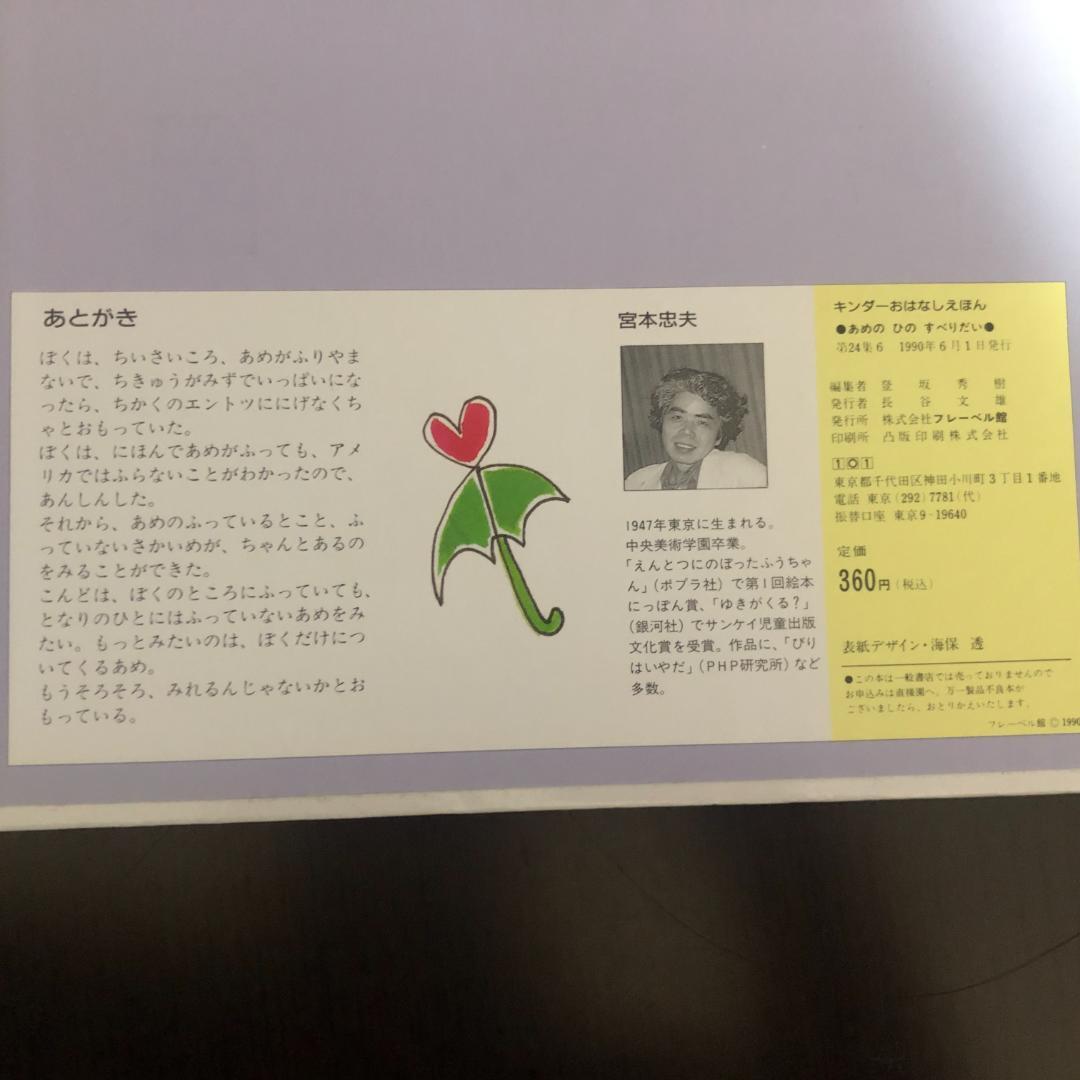 あとがき
ぼくは、ちいさいころ、あめがふりやま
ないで、ちきゅうがみずでいっぱいにな
ったら、ちかくのエントツににげなくち
ゃとおもっていた。
ぼくは、にほんであめがふっても、アメ
リカではふらないことがわかったので、
あんしんした。
それから、あめのふっているとこと、ふ
っていないさかいめが、ちゃんとあるの
をみることができた。
こんどは、ぼくのところにふっていても、
となりのひとにはふっていないあめをみ
たい。もっとみたいのは、ぼくだけにつ
いてくるあめ。
もうそろそろ、みれるんじゃないかとお
もっている。
宮本忠夫
1947年東京に生まれる。
中央美術学園卒業。
「えんとつにのぼったふうちゃ
ん」(ポプラ社)で第1回絵本
にっぽん賞、「ゆきがくる?」
(銀河社)でサンケイ児童出版
文化賞を受賞。作品に、「びり
はいやだ」(PHP研究所)など
多数。
キンダーおはなしえほん
●あめの ひの すべりだい●
第24集6 1990年6月1日発行
編集者 登坂秀樹
発行者 長谷文雄
発行所 株式会社フレーベル館
印刷所 凸版印刷株式会社
101
東京都千代田区神田小川町3丁目1番地
電話 東京(292)7781(代)
振替口座 東京9-19640
定価
360円(税込)
表紙デザイン・海保 透
●この本は一般書店では売っておりませんので
お申込みは直接園へ。万一製品不良本が
ございましたら、おとりかえいたします。
フレーベル館 © 1990